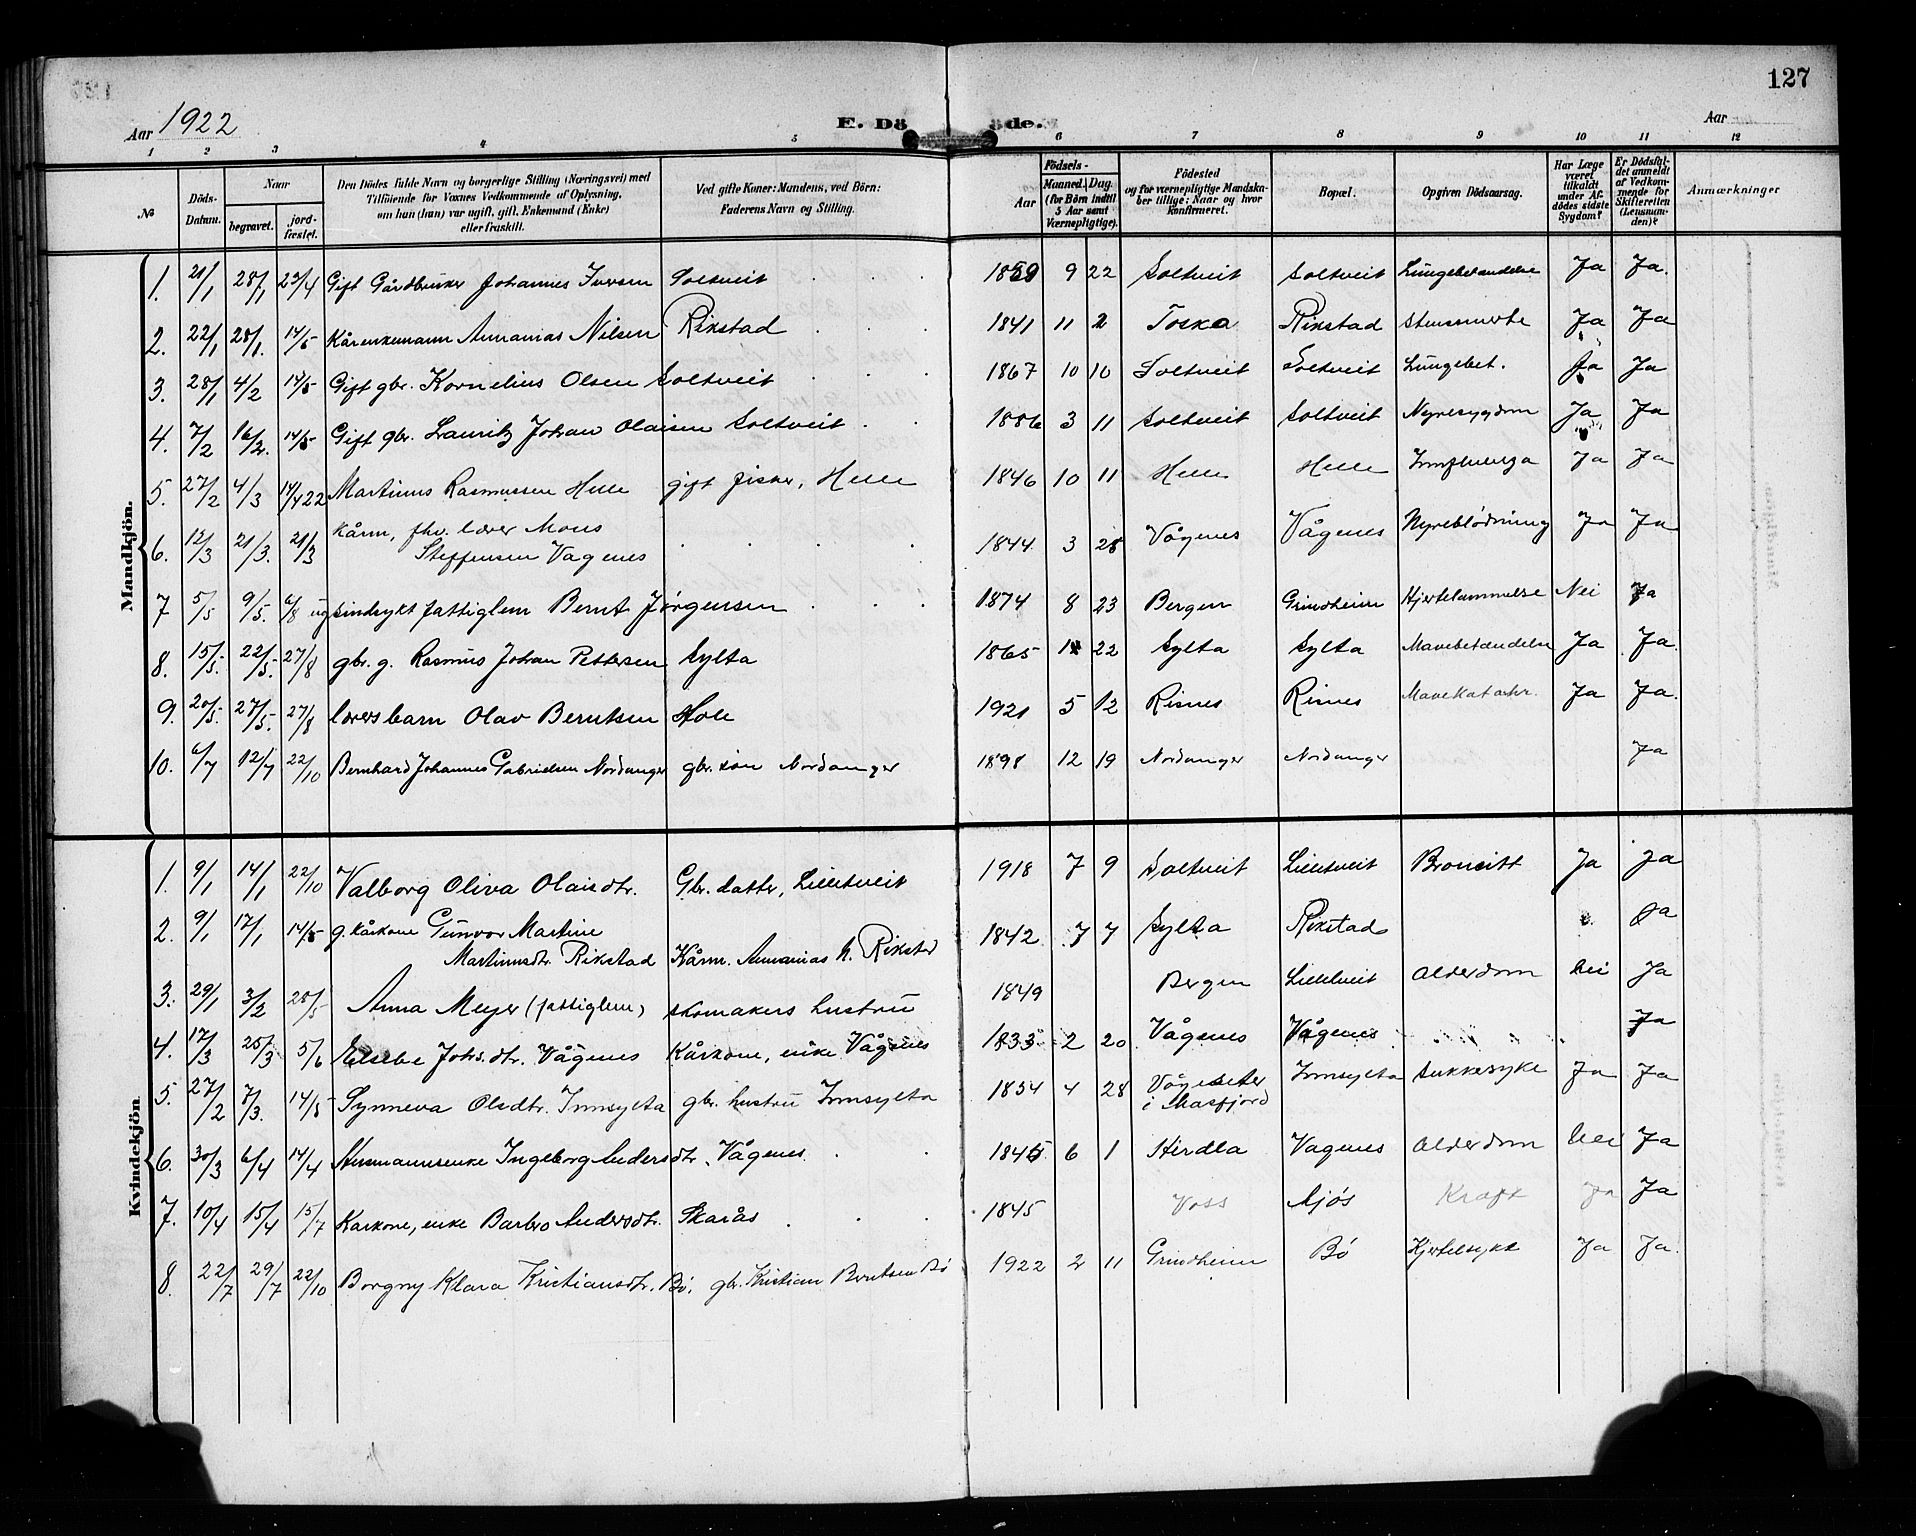 127
Aar 1922 E. Döde. Aar
1 2 3 4 5 6 7 8 9 10 11 12
№ Döds-Datum. Naar begravet. jord-fæstet. Den Dödes fulde Navn og borgerlige Stilling (Næringsvei) med Tilföiende for Voxnes Vedkommende af Oplysning, om han (hun) var ugift, gift, Enkemand (Enke) eller fraskilt. Ved gifte Koner: Mandens, ved Börn: Faderens Navn og Stilling. Födsels- Aar Maaned. Dag. (for Börn indtil 5 Aar samt Værnepligtige). Födested og for værnepligtige Mandskaber tillige: Naar og hvor konfirmeret. Bopæl. Opgiven Dödsaarsag. Har Læge været tilkaldt under Afdödes sidste Sygdom? Er Dödsfaldet anmeldt af Vedkommende for Skifteretten (Lensmanden)? Anmærkninger
Mandkjön.
1. 21/1 28/1 23/4 Gift Gårdbruker Johannes Iversen Soltveit 1859 9 22 Soltveit Soltveit Lungebetændelse Ja Ja.
2. 22/1 28/1. 14/5 Kårenkemann Annanias Nilsen Rikstad 1841 11 2 Toska Rikstad Ja Ja
3. 28/1 4/2 14/5 Gift gbr. Kornelius Olsen Soltveit 1867 10 10 Soltveit Soltveit Lungebet. Ja Ja
4. 7/2 16/2. 14/5 Gift gbr. Lauritz Johan Olaisen Soltveit 1886 3 11 Soltveit Soltveit Nyresygdom Ja Ja
5. 27/2 4/3 14/4 22 Martinus Rasmussen Helle gift fisker, Helle 1846 10 11 Helle Helle Innfluenza Ja Ja
6. 12/3 21/3. 21/3 Kårm, fhv. lærer Mons
Steffensen Vagenes 1844 3 28 Vågenes Vågenes Nyreblödning Ja Ja
7 5/5 9/5. 6/8 ug sindsykt fattiglem Bernt Jørgensen 1874 8 23 Bergen Grindheim Hjertelammelse Nei Ja
8. 15/5. 22/5. 27/8 gbr. g. Rasmus Johan Pettersen Sylta 1865 22 Sylta Sylta Mavebetændelse Ja Ja.
9. 20/5. 27/5. 27/8 lærersbarn Olav Berntsen Hole 1921 5 12 Risnes Risnes Mavekatarhr. Ja Ja.
10. 6/7 12/7 22/10 Bernhard Johannes Gabrielsen Nordanger gbr. søn Nordanger 1898 12 19 Nordanger Nordanger Ja
Kvindekjön.
1. 9/1 14/1 22/10 Valborg Oliva Olaisdtr. Gbr. datter, Lilletveit 1918 7 9 Soltveit Lilletveit Broncitt Ja Ja
2. 9/1 17/1 14/5 g. kårkone Gunvor Martine
Martinusdtr. Rikstad Kårm. Annanias N. Rikstad 1842 7 7 Sylta Rikstad Ja
3. 29/1 3/2 28/5 Anna Meyer (fattiglem) skomakers hustru 1849 Bergen Lilletveit Alderdom Nei Ja
4. 17/3 25/3 5/6 Elsebe Johs.dtr. Vågenes Kårkone, enke Vågenes 1833 2 20 Vågenes Vågenes Ja
5. 27/2 7/3. 14/5 Synneva Olsdtr. Innsylta gbr. hustru Innsylta 1854 4 28 Vågseter
i Masfjord Innsylta Sukkesyke Ja Ja
6. 30/3 6/4 14/4 Husmannsenke Ingeborg Andersdtr. Vågenes 1845 6 1 Herdla Vagenes Alderdom Nei Ja
7. 10/4 15/4 15/7 Karkone, enke Barbro Andersdtr. Skarås 1845 Voss Mjös Kraft Ja Ja
8. 22/7 29/7 22/10 Borgny Klara Kristiansdtr. Bö. gbr. Kristian Berntsen Bö 1922 2 11 Grindheim Bö Kjertelsykt Ja Ja.